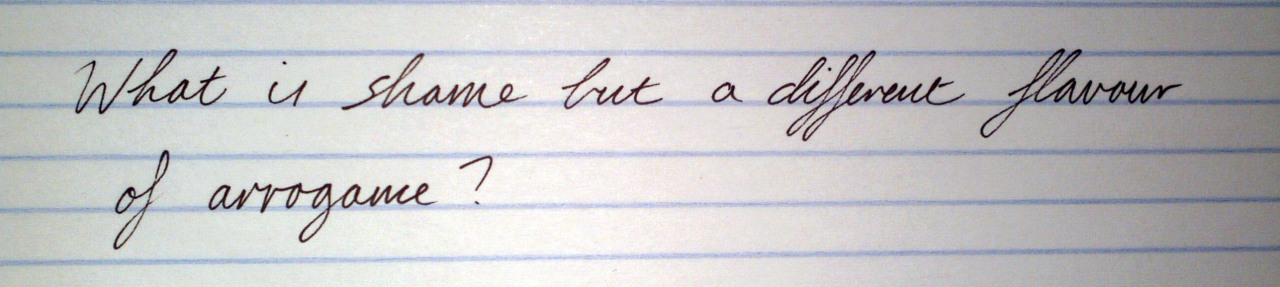 What is shame but a different flavour
of arrogance?